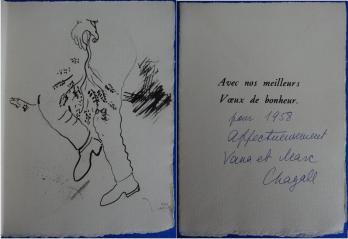 Avec nos meilleurs
Vœux de bonheur.
pour 1958
affectueusement
Vava et Marc
Chagall